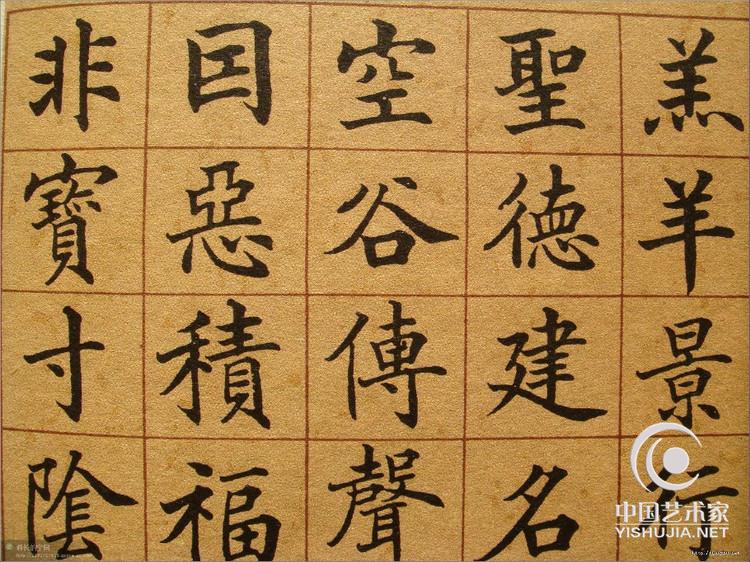 羔羊景行
聖德建名
空谷傳聲
囙惡積福
非寶寸陰
中国艺术家
YISHUJIA.NET